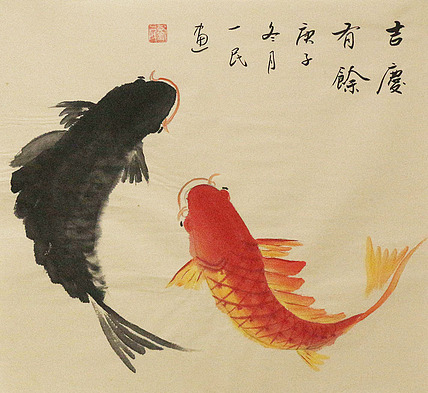 吉慶
有餘
庚子
冬月
一民
畫